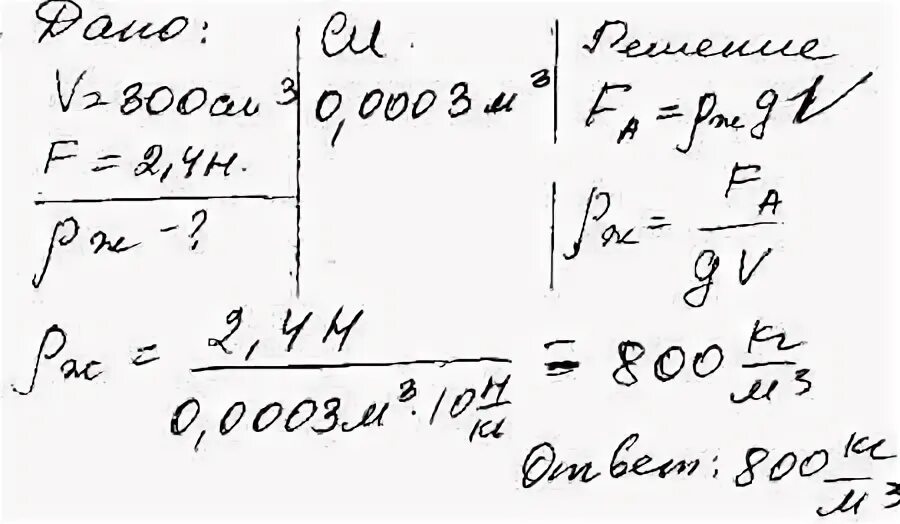 Дано:
V=300см³
F = 2,4Н.
ρж -?
СИ.
0,0003м³
Решение
F_A = ρж g V
ρж = F_A / gV
ρж = 2,4Н / 0,0003м³·10 Н/кг = 800 кг/м³
Ответ: 800 кг/м³